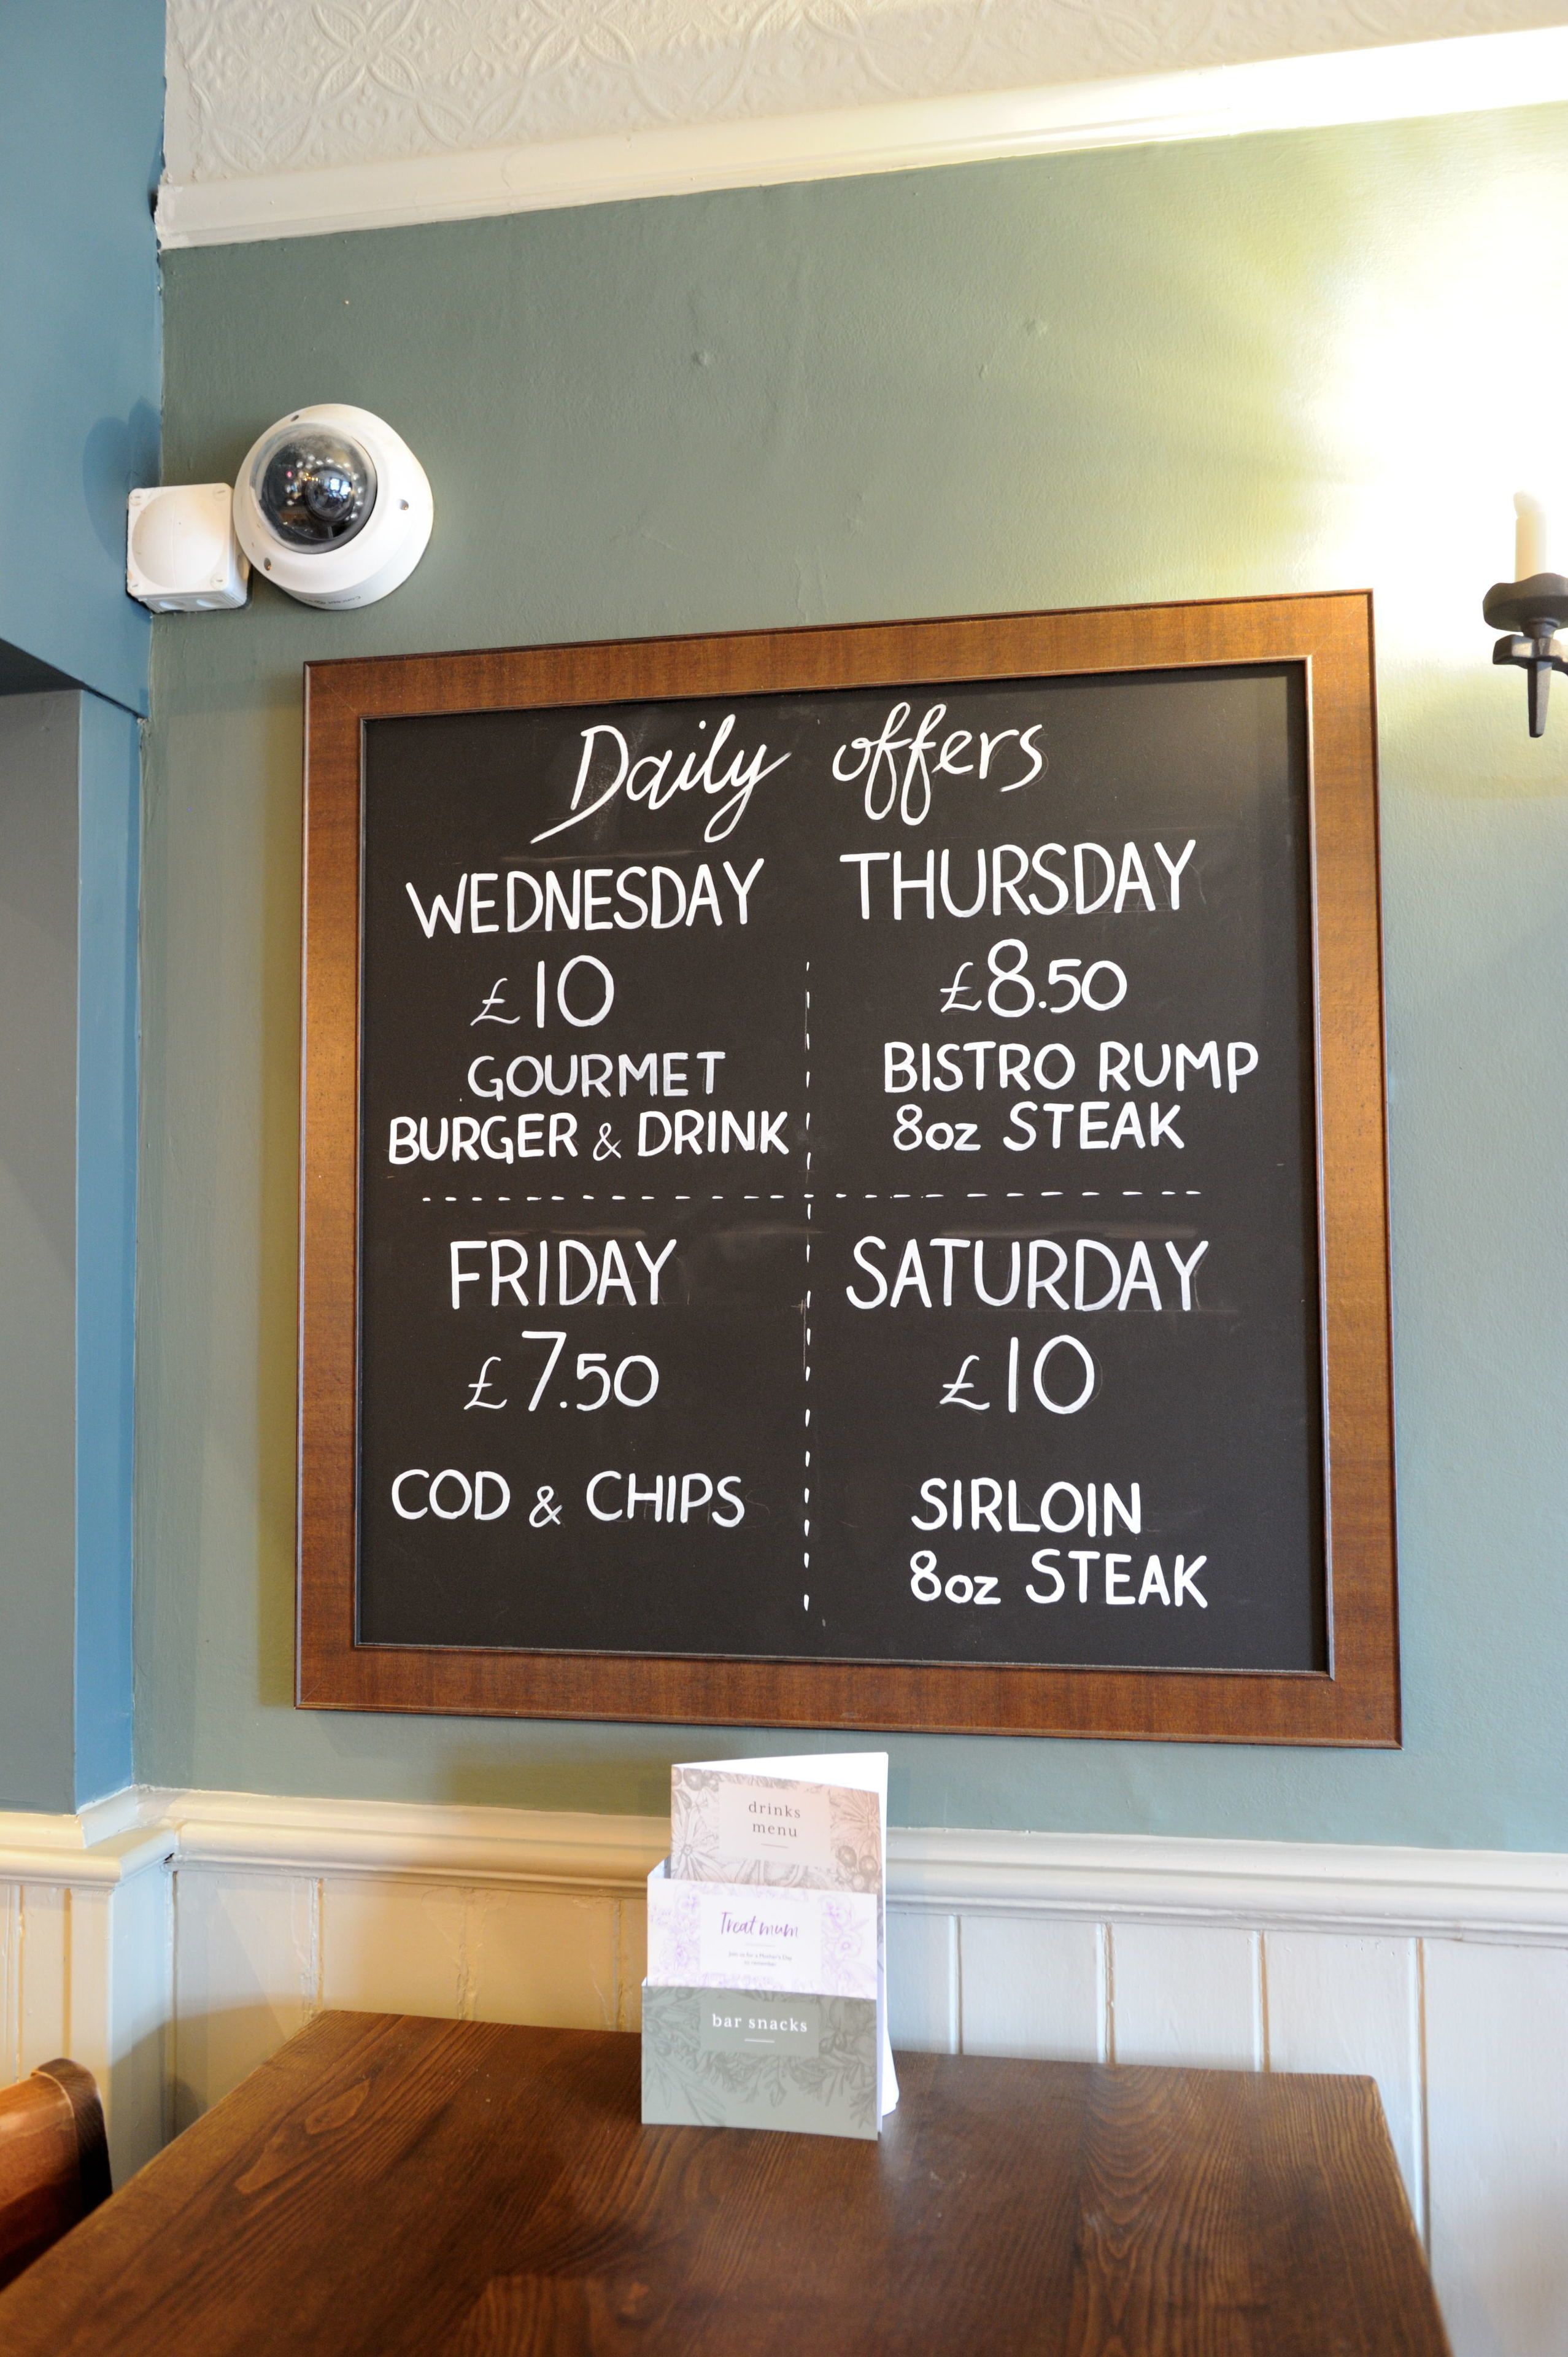 Daily offers
WEDNESDAY
£10
GOURMET
BURGER & DRINK
THURSDAY
£8.50
BISTRO RUMP
8oz STEAK
FRIDAY
£7.50
COD & CHIPS
SATURDAY
£10
SIRLOIN
8oz STEAK
drinks
menu
Treat mum
Join us for a Mother's Day
bar snacks